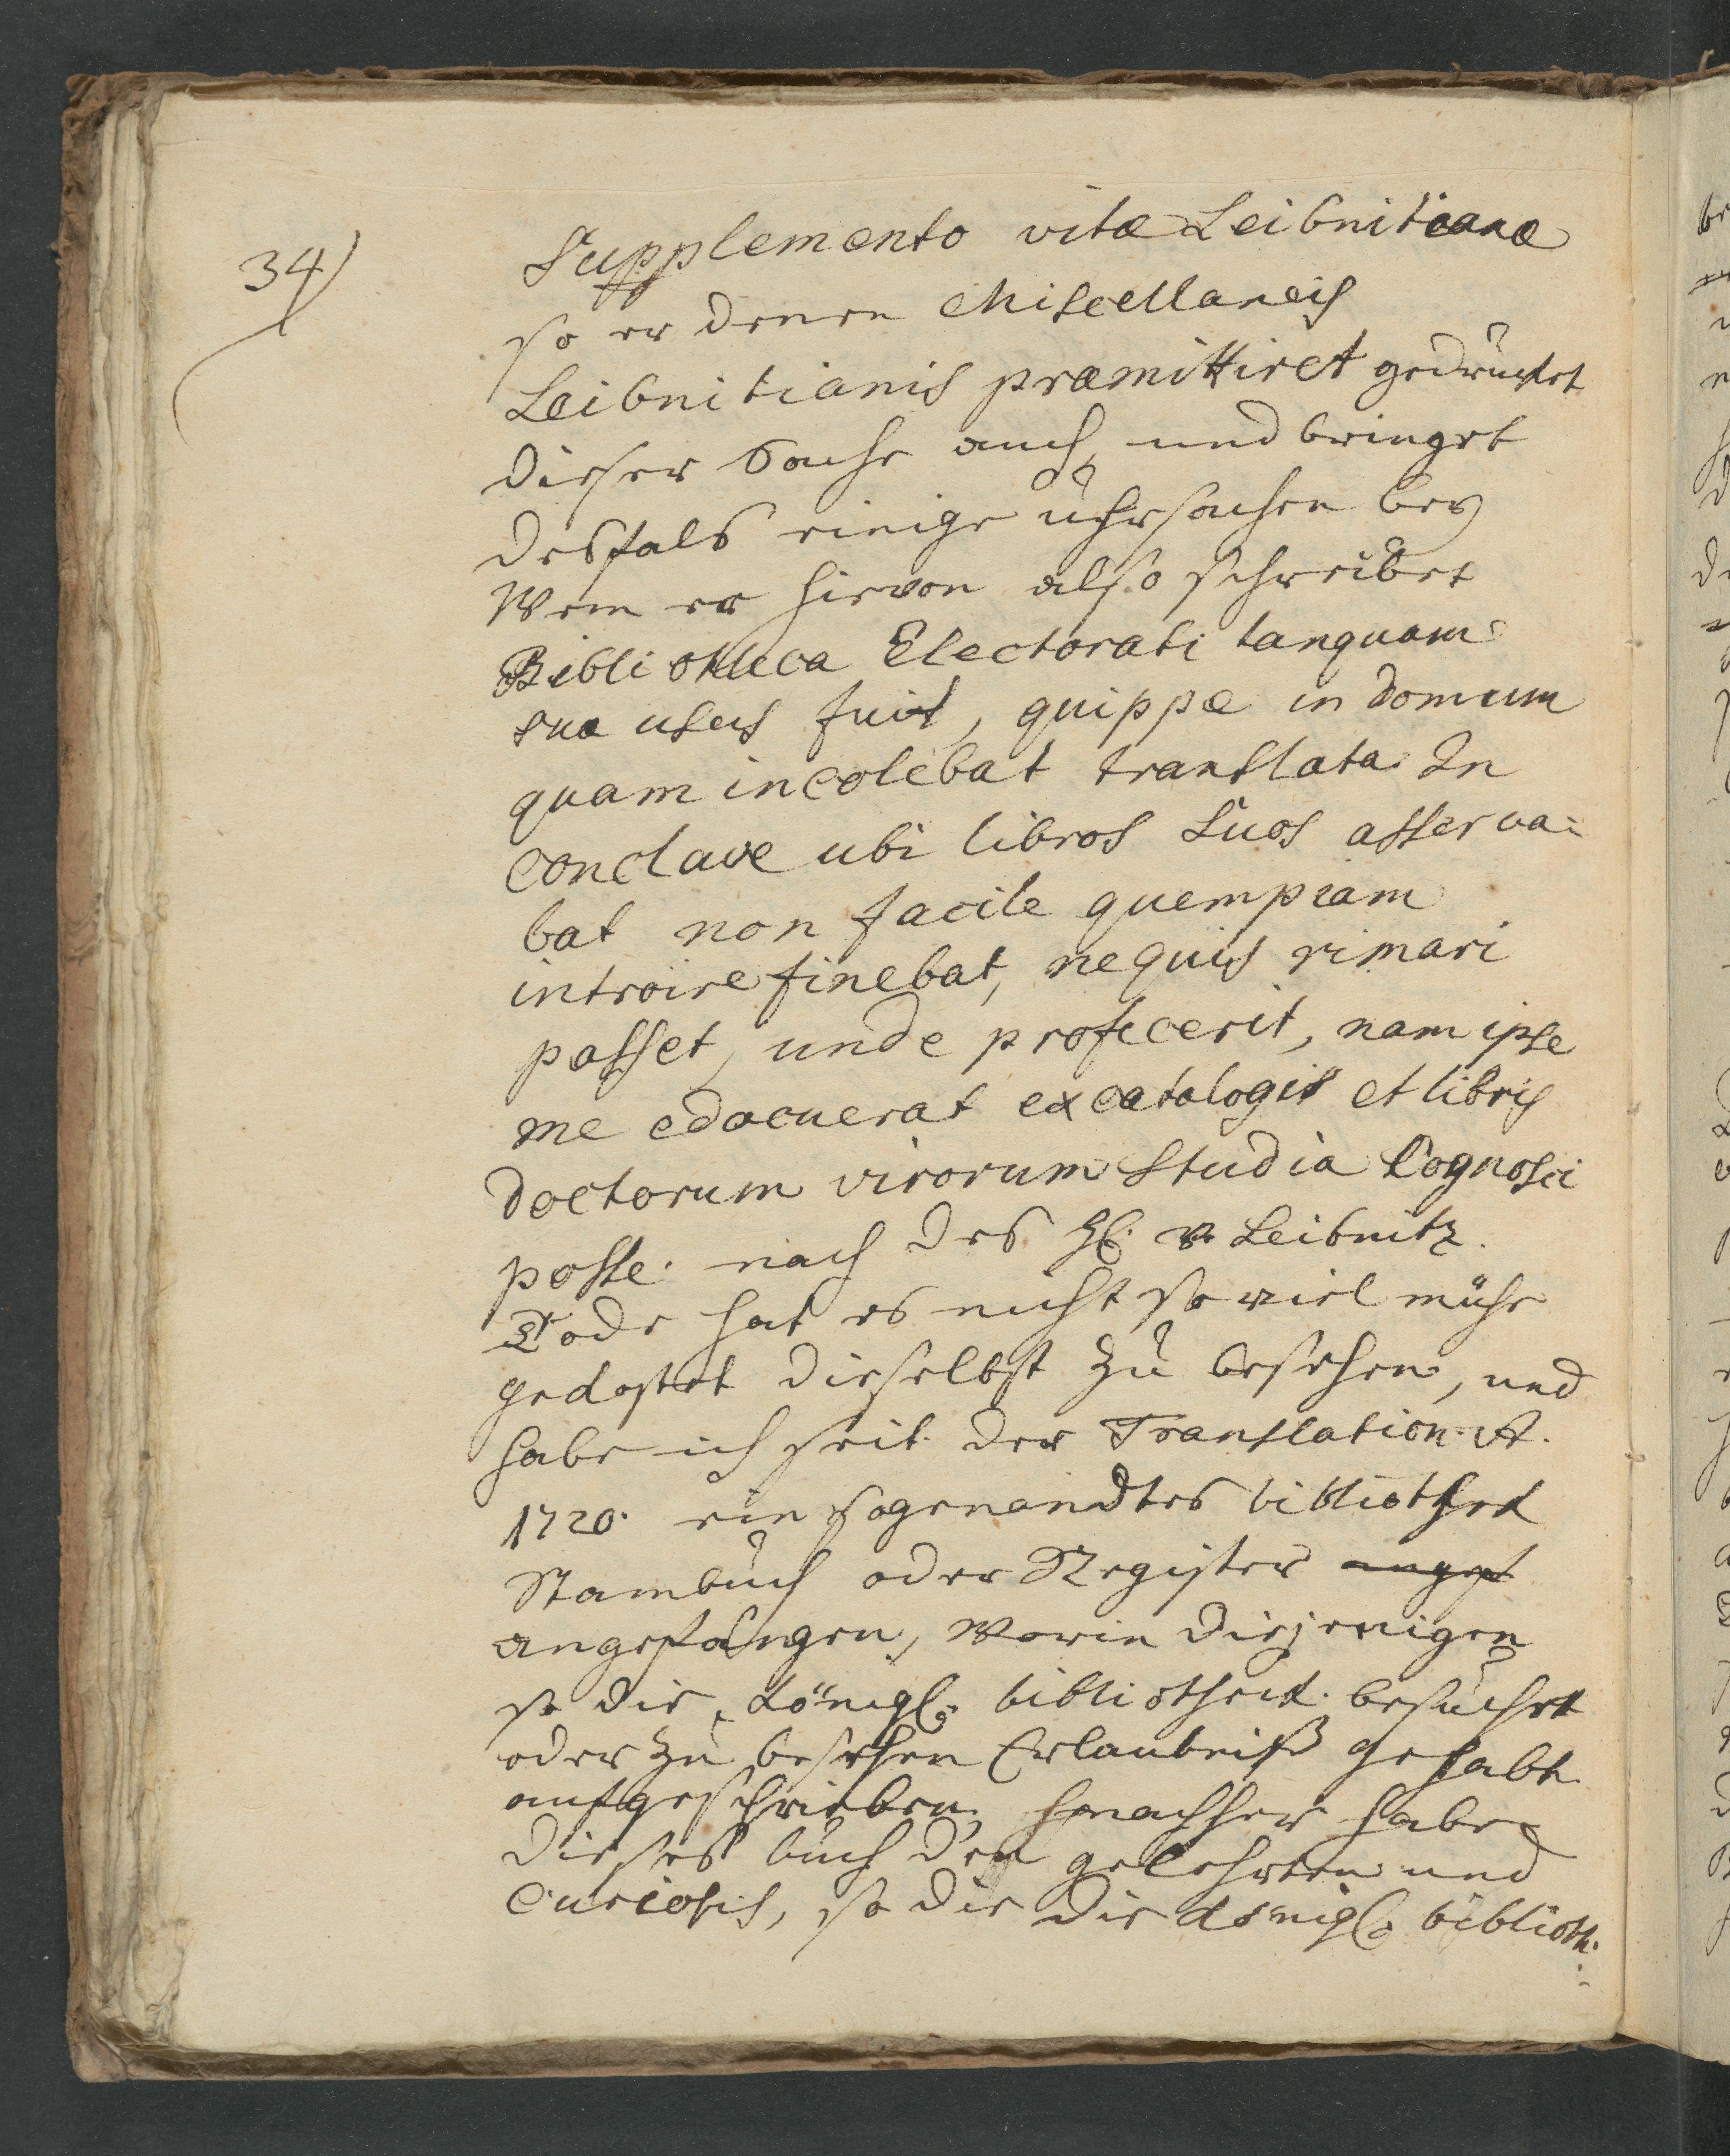 34)
Supplemento vitæ Leibnitianæ
so er denen Miscellaneis
Leibnitianis præmittiret gedencket
dieser Sache auch, und bringet
desfals einige uhrsachen bey
Wenn er hievon also schreibet
Bibliotheca Electorati tanquam
sua usus fuit, quippe in domum
quam incolebat translata In
conclave ubi libros suos asserva-
bat non facile quempiam
introire sinebat, nequis rimari
posset, unde profecerit, nam ipse
me edocuerat ex catalogis et libris
doctorum virorum studia cognosci
posse. nach des H. v. Leibnitz.
Tode hat es nicht so viel mühe
gekostet dieselbst zu besehen, und
habe ich seit der Translation A.
1720. ein sogenandtes bibliothek
Stambuch oder Register angef
angefangen, worin diejenigen
so die königl. bibliotheck besuchet
oder zu besehen Erlaubniß gehabt
aufgeschrieben, nachher habe
dieses buch den gelehrten und
Curiosis, so die die königl. biblioth.